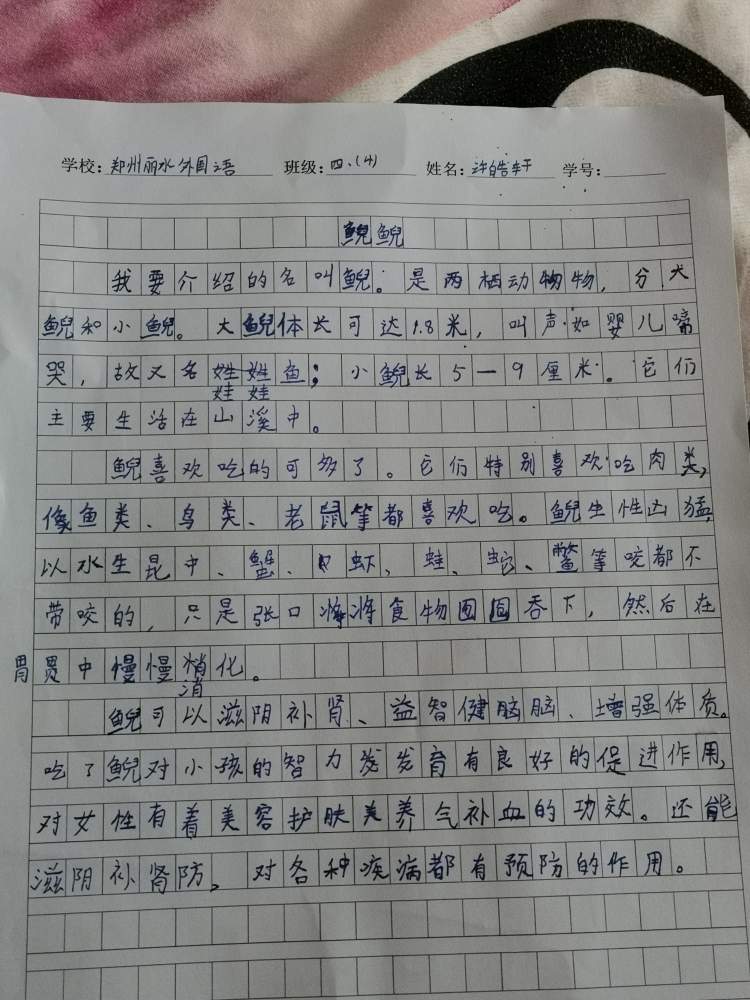 学校：郑州丽水外国语 班级：四、(4) 姓名：许皓轩 学号：
鲵鲵
我要介绍的名叫鲵。是两栖动物物，分大
鲵和小鲵。大鲵体长可达1.8米，叫声如婴儿啼
哭，故又名姓姓鱼；小鲵长5一9厘米。它们
娃娃
主要生活在山溪中。
鲵喜欢吃的可多了。它们特别喜欢吃肉类，
像鱼类、鸟类、老鼠等都喜欢吃。鲵生性凶猛，
以水生昆中、蟹、虾、蛙、蛇、鳖等咬都不
带咬的，只是张口将将食物囫囵吞下，然后在
胃胃中慢慢悄化。
消
鲵可以滋阴补肾、益智健脑脑、增强体质。
吃了鲵对小孩的智力发发育有良好的促进作用，
对女性有着美容护肤美养气补血的功效。还能
滋阴补肾防，对各种疾病都有预防的作用。